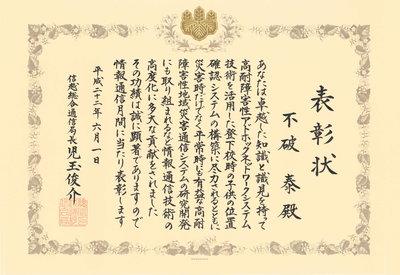 表彰状
不破 泰 殿
あなたは卓越した知識と識見を持って
高耐障害性アドホックネットワークシステム
技術を活用した登下校時の子供の位置
確認システムの構築に尽力されるとともに
災害時だけでなく平常時にも有益な高耐
障害性地域災害通信システムの研究開発
にも取り組まれるなど情報通信技術の
高度化に多大な貢献をされました
その功績は誠に顕著でありますので
情報通信月間に当たり表彰します
平成二十三年六月一日
信越総合通信局長 児玉俊介